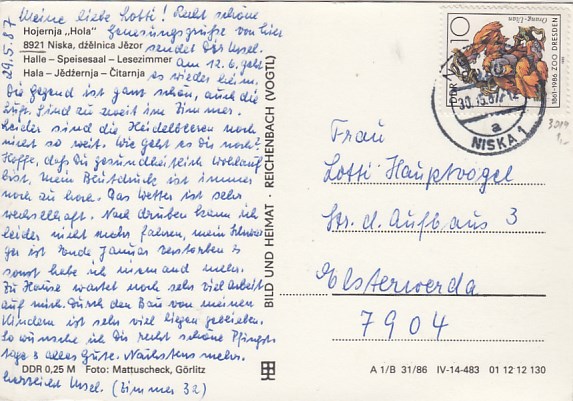 29.5.87
Meine liebe Lotti! Recht schöne
Hojernja „Hola"
Genesungsgrüsse von hier
8921 Niska, dźělnica Jězor
sendet Dir Ursel.
Halle – Speisesaal – Lesezimmer
Am 12.6. geht
Hala – Jědźernja – Čitarnja
es wieder heim.
Die Gegend ist ganz schön, auch die
Luft. Sind zu zweit im Zimmer.
Leider sind die Heidelbeeren noch
nicht so weit. Wie geht es Dir noch?
Hoffe, daß Du gesundheitlich wohlauf
bist, mein Blutdruck ist immer
noch zu hoch. Das Wetter ist sehr
wechselhaft. Nach drüben kann ich
leider nicht mehr fahren, mein Schwa-
ger ist Ende Januar verstorben &
sonst habe ich niemand mehr.
Zu Hause wartet noch sehr viel Arbeit
auf mich. Durch den Bau von meinen
Kindern ist sehr viel liegen geblieben.
So wünsche ich Dir recht schöne Pfingst-
tage & alles Gute. Nächstens mehr.
herzlichst Ursel. (Zimmer 32)
DDR 0,25 M Foto: Mattuscheck, Görlitz
BILD UND HEIMAT · REICHENBACH (VOGTL)
10
Orang-Utan
DDR
1861-1986 ZOO DRESDEN
a
NISKA 1
Frau
Lotti Hauptvogel
Str. d. Aufbaus 3
Elsterwerda
7904
A 1/B 31/86 IV-14-483 01 12 12 130